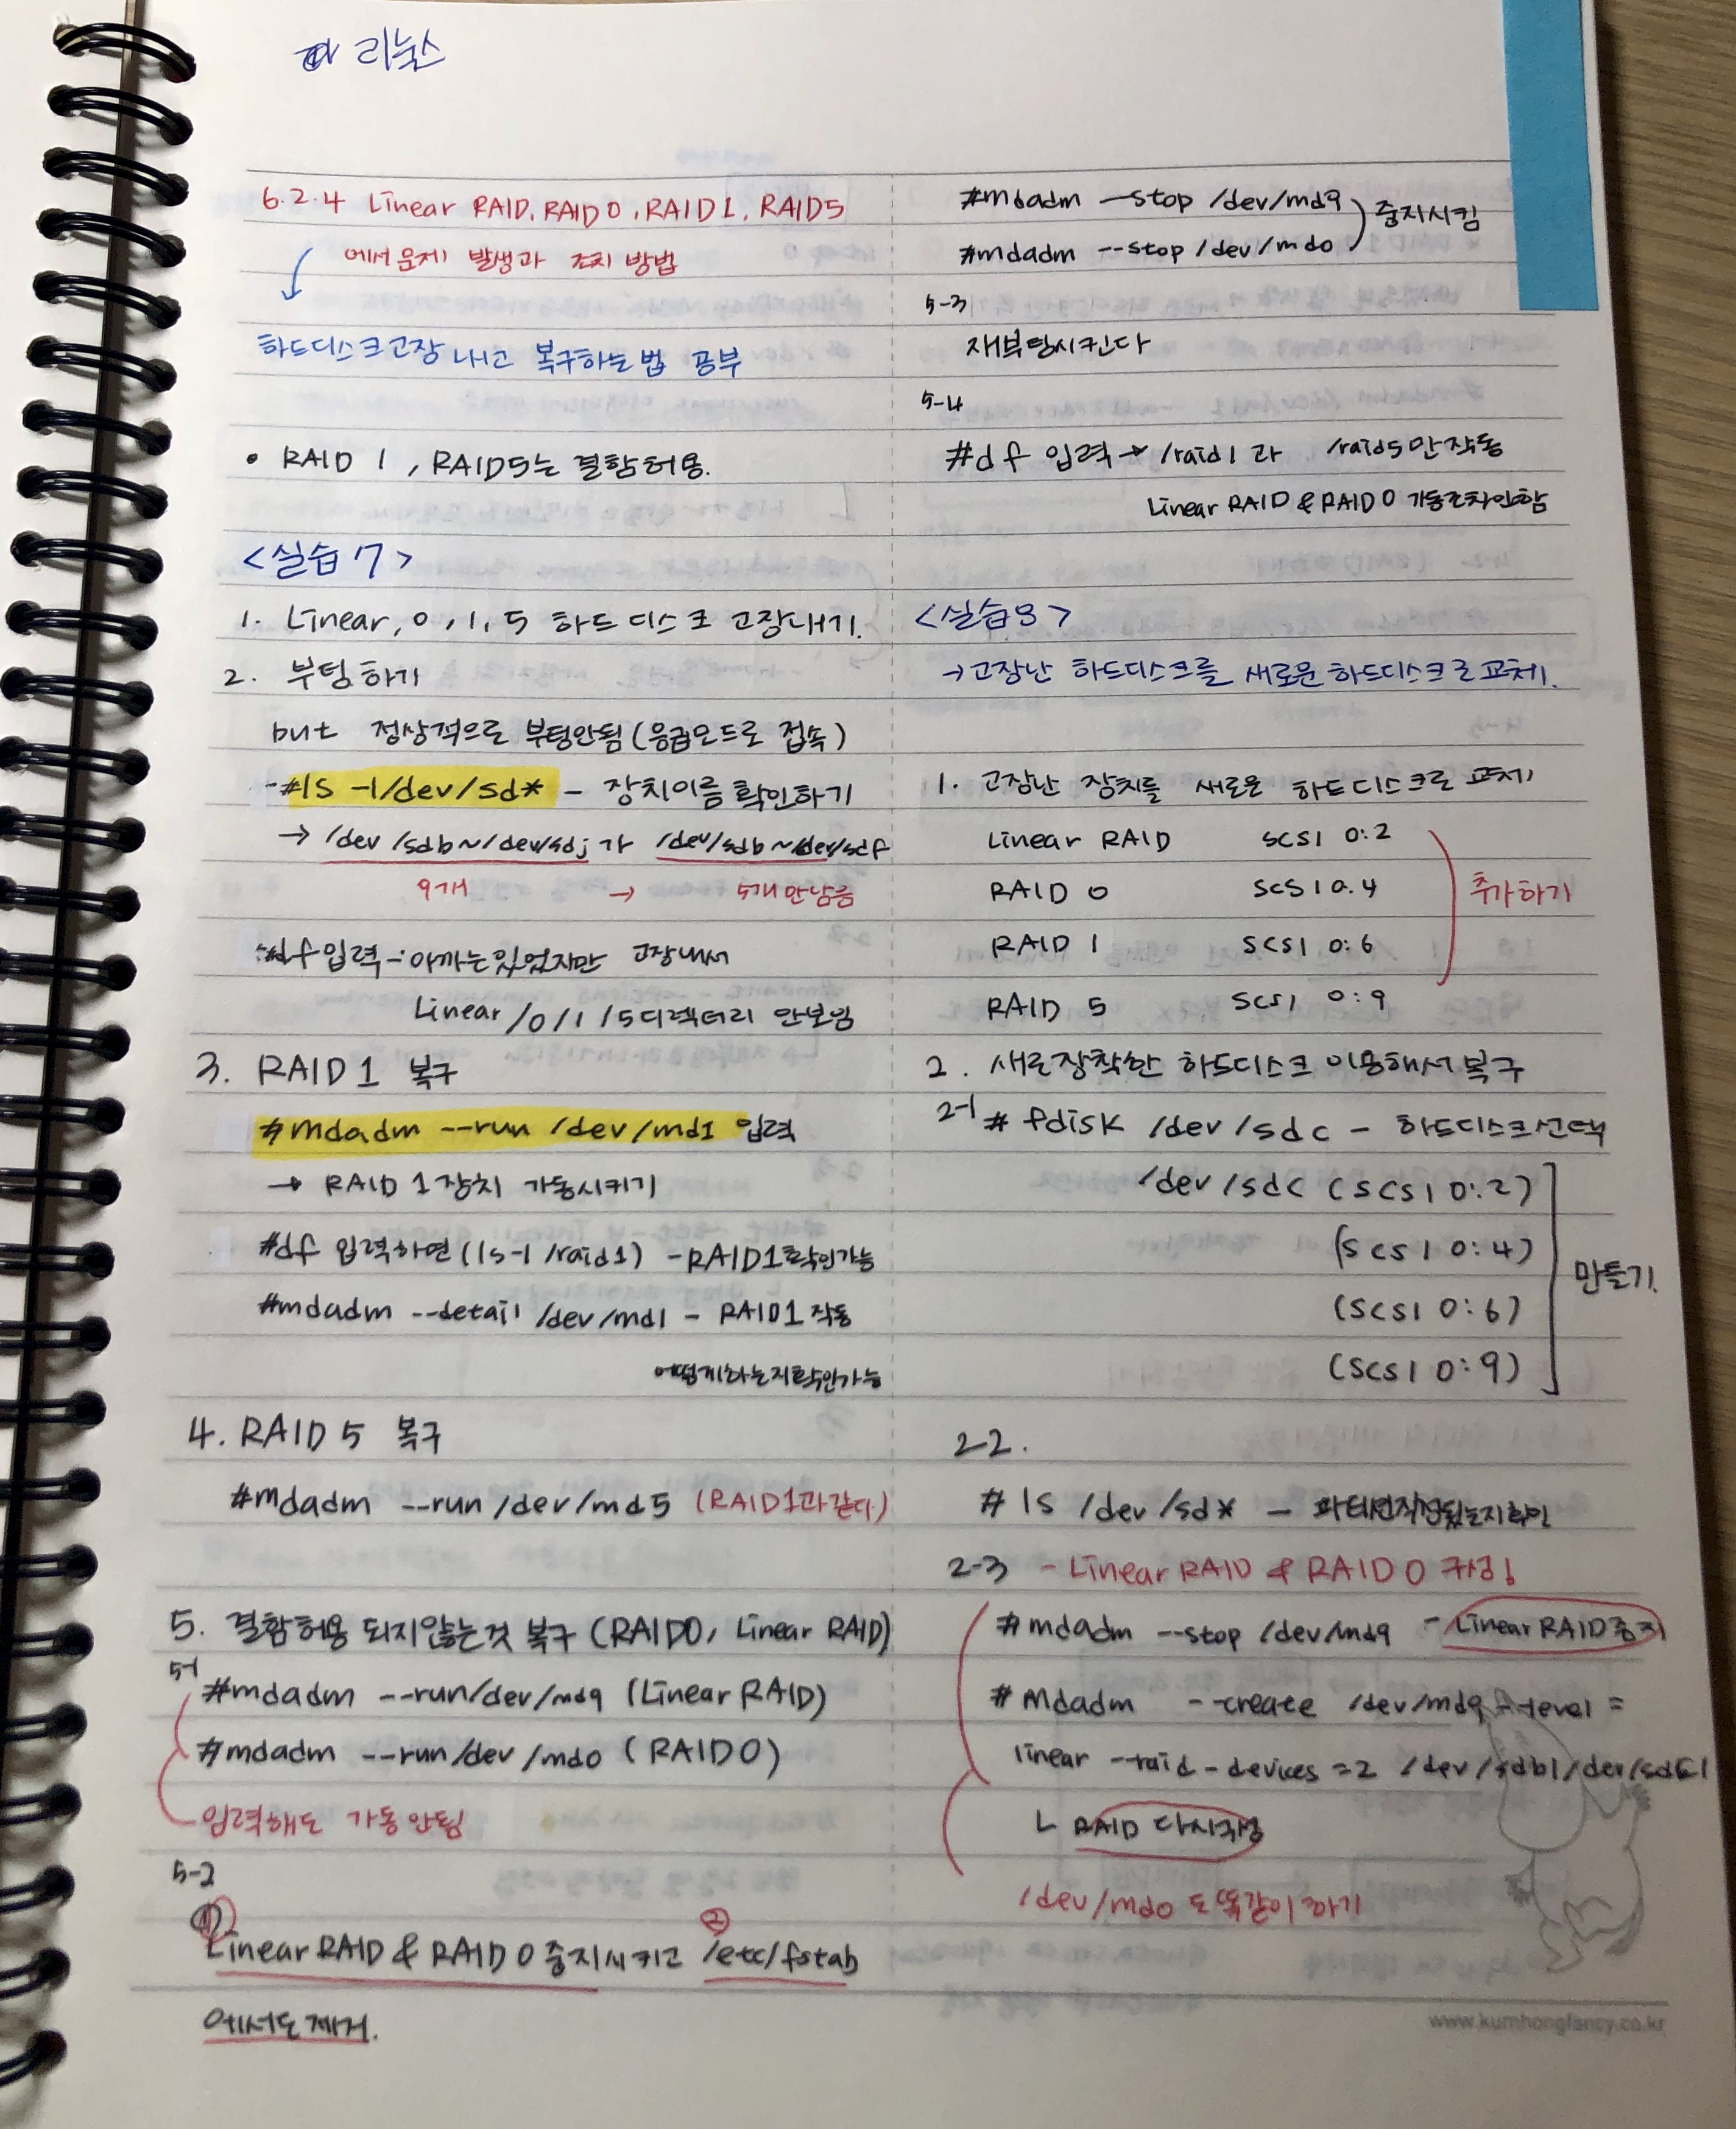 리눅스
6.2.4 Linear RAID, RAID 0, RAID 1, RAID5
에서 문제 발생과 조치 방법
하드디스크 고장 내고 복구하는 법 공부
• RAID 1, RAID5는 결함허용.
<실습 7>
1. Linear, 0, 1, 5 하드디스크 고장내기.
2. 부팅하기
but 정상적으로 부팅안됨 (응급모드로 접속)
- #ls -l /dev/sd* - 장치이름 확인하기
→ /dev/sdb ~ /dev/sdj 가 /dev/sdb ~ /dev/sdf
9개 → 5개만남음
#df 입력 -: 아까는 있었지만 고장내서
Linear/0/1/5 디렉터리 안보임
3. RAID 1 복구
#mdadm --run /dev/md1 입력
→ RAID 1 장치 가동시키기
#df 입력하면 (ls -l /raid1) - RAID1 확인가능
#mdadm --detail /dev/md1 - RAID1 작동
어떻게하는지확인가능
4. RAID 5 복구
#mdadm --run /dev/md5 (RAID1과같다)
5. 결함허용 되지않는것 복구 (RAID0, Linear RAID)
5-1
#mdadm --run/dev/md9 (Linear RAID)
#mdadm --run/dev/md0 (RAID0)
입력해도 가동 안됨
5-2
① Linear RAID & RAID 0 중지시키고 ② /etc/fstab
에서도 제거.
#mdadm --stop /dev/md9
#mdadm --stop /dev/md0
중지시킴
5-3
재부팅시킨다
5-4
#df 입력 → /raid1 과 /raid5만 작동
Linear RAID & RAID 0 가동조차안함
<실습8>
→ 고장난 하드디스크를 새로운 하드디스크로 교체.
1. 고장난 장치를 새로운 하드디스크로 교체
Linear RAID SCSI 0:2
RAID 0 SCSI 0.4
RAID 1 SCSI 0:6
RAID 5 SCSI 0:9
추가하기
2. 새로장착한 하드디스크 이용해서 복구
2-1 # fdisk /dev/sdc - 하드디스크선택
/dev/sdc (SCSI 0:2)
(SCSI 0:4)
(SCSI 0:6)
(SCSI 0:9)
만들기.
2-2.
# ls /dev/sd* - 파티션작성됬는지확인
2-3 - Linear RAID & RAID 0 구성
#mdadm --stop /dev/md9 - Linear RAID 중지
# mdadm --create /dev/md9 --level =
linear --raid-devices =2 /dev/sdb1/dev/sdc1
ㄴ RAID 다시구성
/dev/md0 도 똑같이 하기
www.kumhongfancy.co.kr